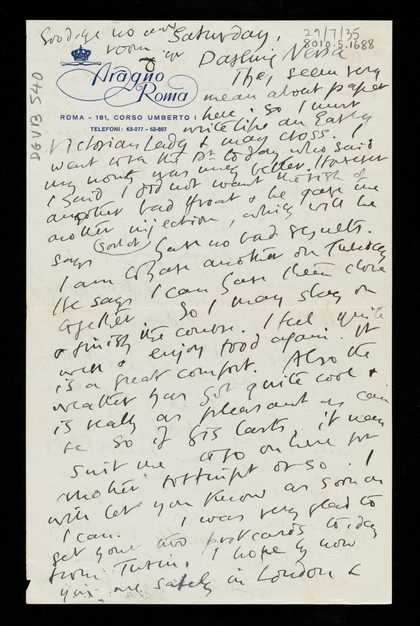 Goodbye no more
room
Saturday.
29/7/35
8010.5.1688
Darling Nessa
Aragno
Roma
They seem very
mean about paper
ROMA - 181, CORSO UMBERTO I
here. So I must
TELEFONI: 63-077 - 63-687
write like an Early
DGVB 540
Victorian Lady & may cross. I
went to the Dr today who said
my mouth was much better. However
I said I did not want the risk of
another bad throat & he gave me
another injection, which will he
says have no bad results.
I am to have another on Tuesday
He says I can have them close
together So I may stay on
& finish the course. I feel quite
well & enjoy food again. It
is a great comfort. Also the
weather has got quite cool &
is really as pleasant as can
be So if this lasts, it may
suit me to stay on here for
another fortnight or so. I
will let you know as soon as
I can. I was very glad to
get your two postcards today
from Turin. I hope by now
you are safely in London &